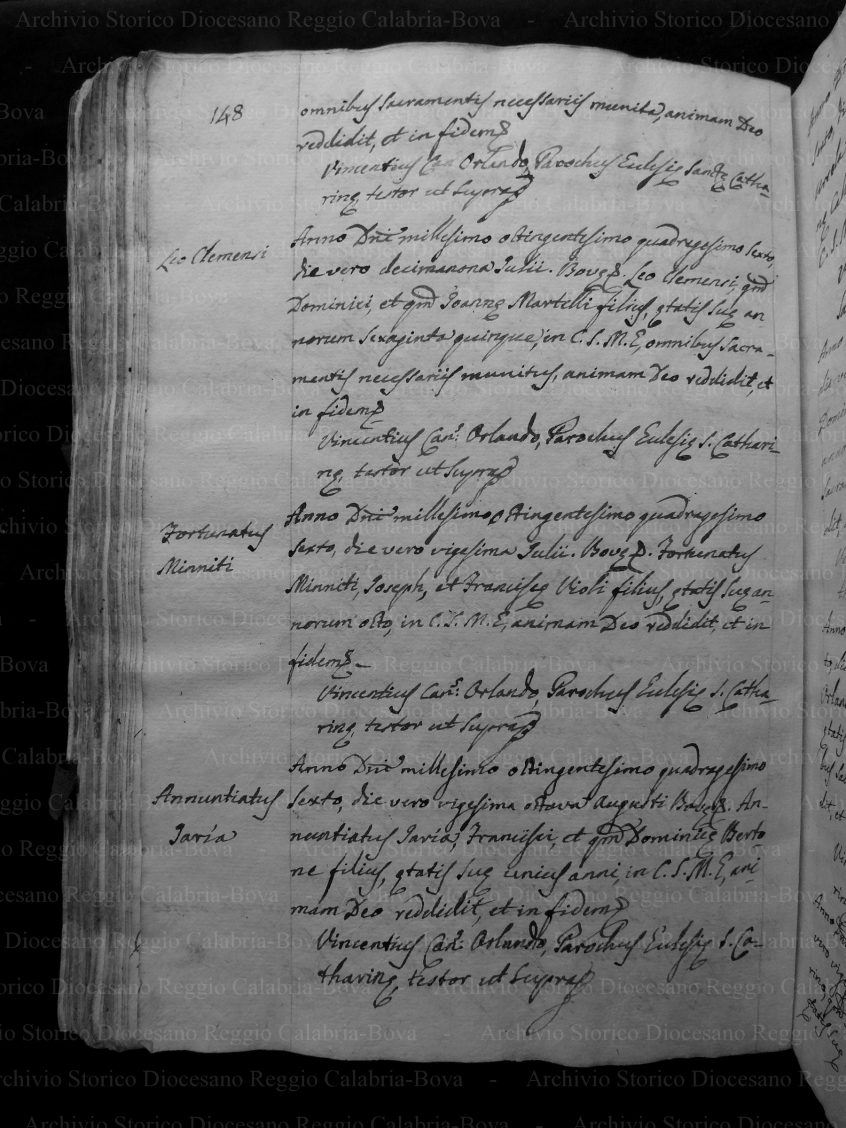 148
omnibus Sacramentis necessariis munita, animam Deo
reddidit, et in fidem
Vincentius Can: Orlando, Parochus Eclesię Sanctę Catha-
rinę, testor ut Supra
Leo Clemensi
Anno Dni millesimo octingentesimo quadragesimo sexto,
die vero decimanona Iulii. Bovę. Leo Clemensi, qm
Dominici, et qm Ioannę Martelli filius, ętatis suę an
norum sexaginta quinque, in C. S. M. E, omnibus Sacra-
mentis necessariis munitus, animam Deo reddidit, et
in fidem
Vincentius Can: Orlando, Parochus Eclesię S. Cathari-
nę, testor ut Supra
Fortunatus
Minniti
Anno Dni millesimo octingentesimo quadragesimo
sexto, die vero vigesima Iulii. Bovę. Fortunatus
Minniti, Ioseph, et Franciscę Violi filius, ętatis suę an-
norum octo, in C. S. M. E, animam Deo reddidit, et in
fidem
Vincentius Can: Orlando, Parochus Eclesię S. Catha-
rinę, testor ut Supra
Annuntiatus
Iaria
Anno Dni millesimo octingentesimo quadragesimo
sexto, die vero vigesima octava Augusti Bovę. An-
nuntiatus Iaria, Francisci, et qm Dominicę Berto
ne filius, ętatis suę unius anni, in C. S. M. E, ani-
mam Deo reddidit, et in fidem
Vincentius Can: Orlando, Parochus Eclesię S. Ca-
tharinę, testor ut Supra
Archivio Storico Diocesano Reggio Calabria-Bova